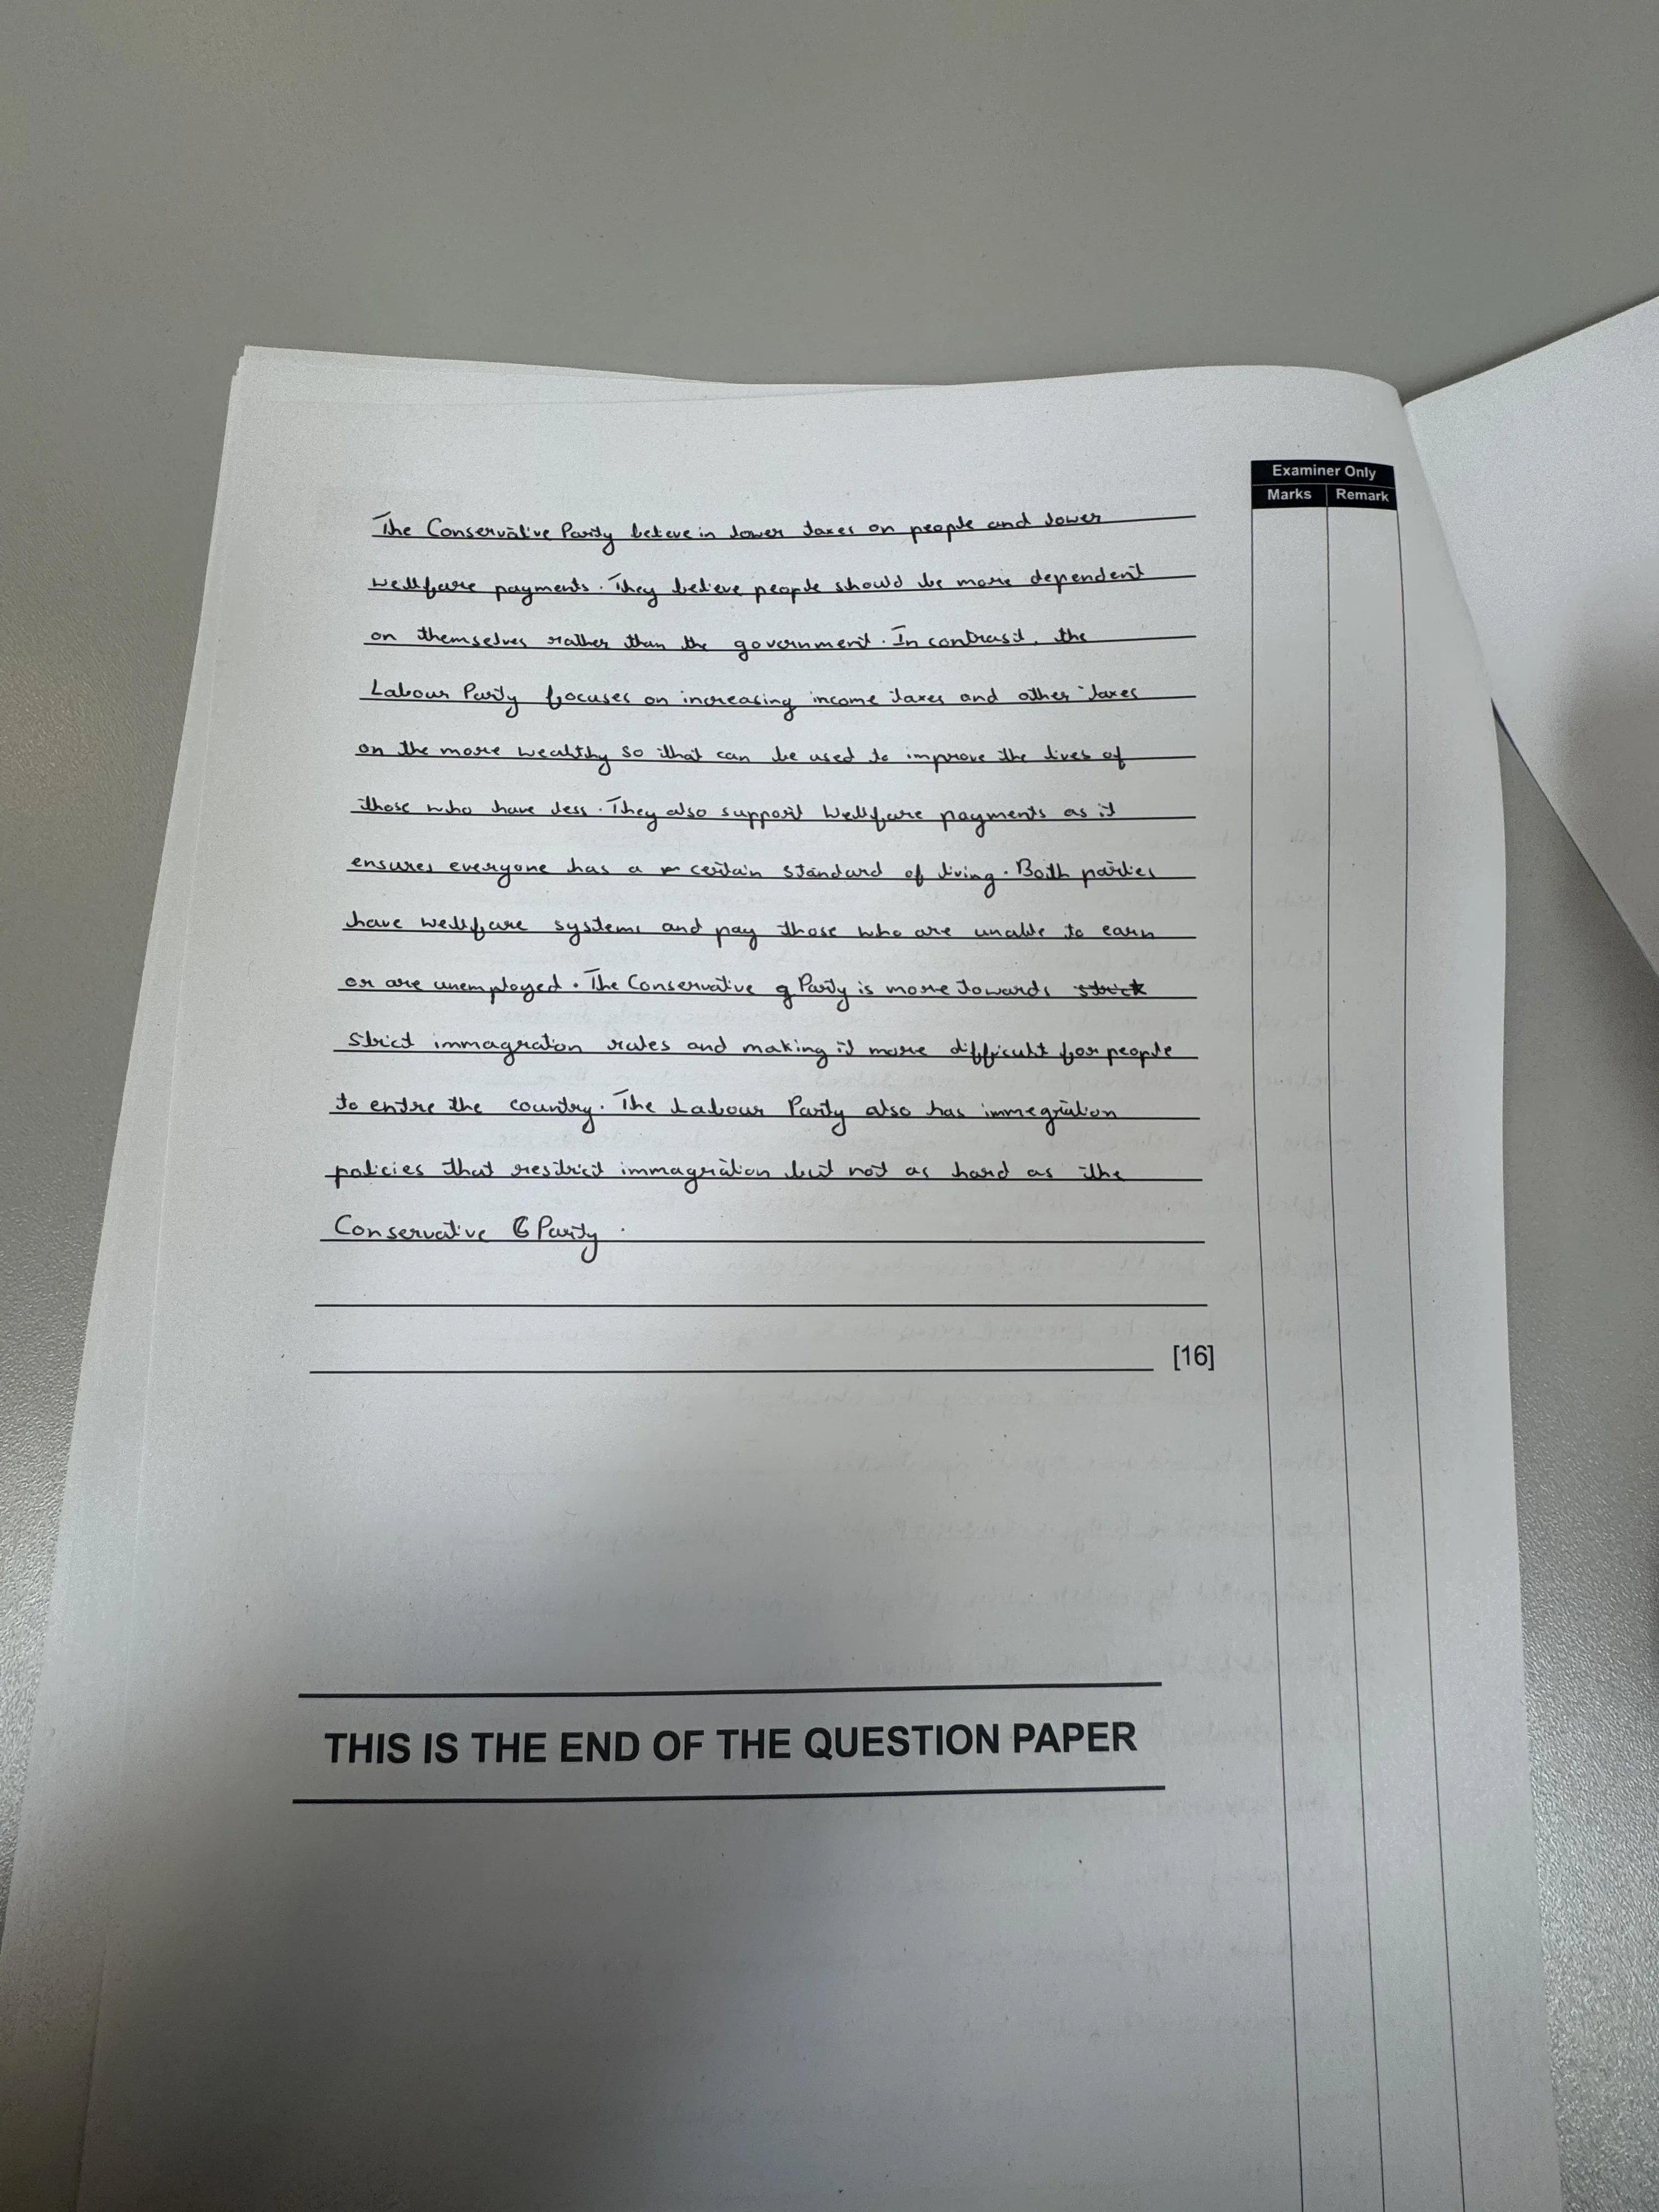 Examiner Only
Marks Remark
The Conservative Party beleve in lower taxes on people and lower
wellfare payments. They believe people should be more dependent
on themselves rather than the government. In contrast, the
Labour Party focuses on increasing income taxes and other taxes
on the more wealthy so that can be used to improve the lives of
those who have less. They also support wellfare payments as it
ensures everyone has a certain standard of living. Both parties
have wellfare systems and pay those who are unable to earn
or are unemployed. The Conservative Party is more towards
strict immagraton rules and making it more difficult for people
to entre the country. The Labour Party also has immegration
policies that restrict immagration but not as hard as the
Conservative Party.
[16]
THIS IS THE END OF THE QUESTION PAPER